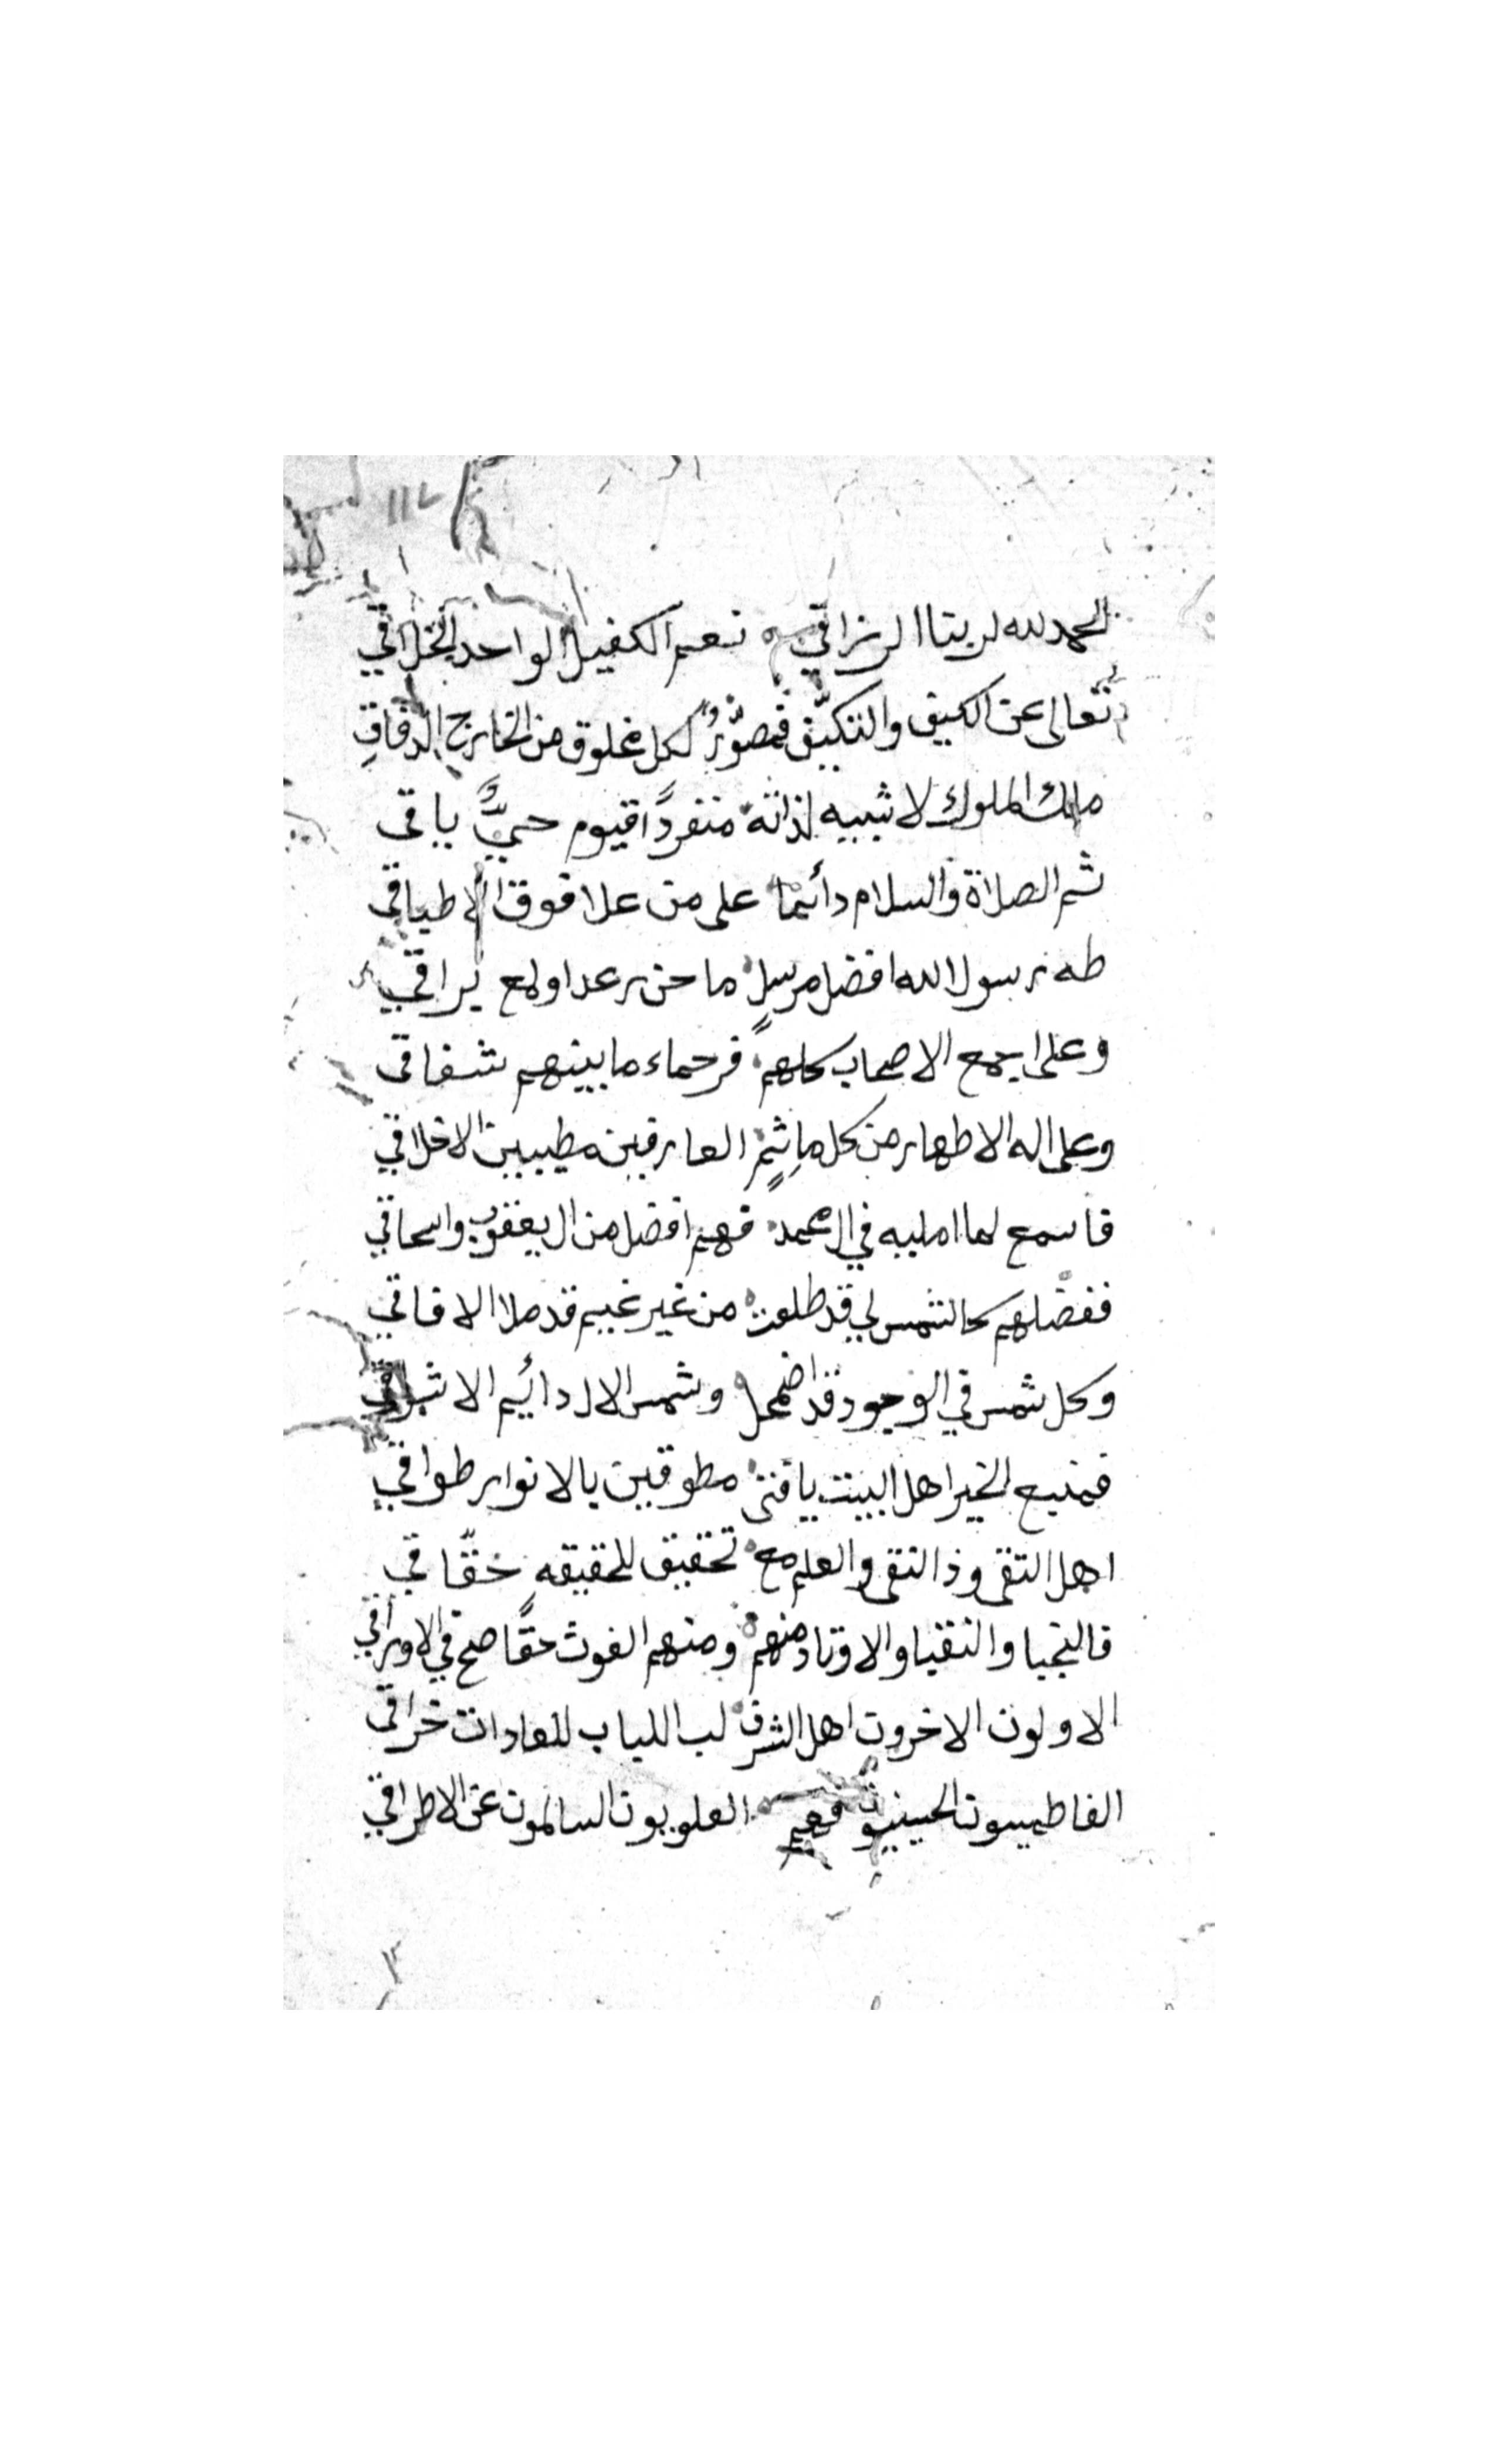 ١١٢
الحمد لله لربنا الرزاقي نعم الكفيل الواحد الخلاقي
تعالى عن الكيف والتكيّف فمصوّرٌ لكل مخلوق من الخارج الدفاقِ
ملك الملوك لا شبيه لذاته منفردًا قيوم حيٌّ باقي
ثم الصلاة والسلام دائما على من علا فوق الاطباقي
طه رسول الله افضل مرسلٍ ما حن رعد اولمع براقي
وعلى اجمع الاصحاب كلهم فرحماء ما بينهم شفاقي
وعلى اله الاطهار من كل ماثمٍ العارفين مطيبين الاخلاقي
فاسمع لما امليه في ال محمد فهم افضل من ال يعقوب واسحاقي
ففضلهم كالشمس لي قد طلعت من غير غيم قد ملا الافاقي
وكل شمس في الوجود قد اضمحل وشمس الال دائيم الاشراقي
فمنبع الخير اهل البيت يا فتى مطوقين بالانوار طواقي
اهل التقى وذا النقى والعلم مع تحقيق للحقيقه حقّاقي
فالنجبا والنقبا والاوتاد منهم ومنهم الغوث حقًا صح في الاوراقي
الاولون الاخرون اهل الشرف لب اللباب للعادات خراقي
الفاطميون الحسينيون فهم العلويون السالمون عن الاطراقي